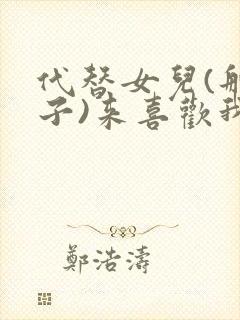 代替女兒(
子)來喜歡我
鄭浩濤